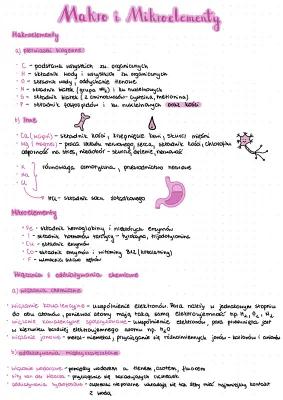 Makro i Mikroelementy
Makroelementy
a) pierwiastki biogenne
- C - podstawa wszystkich zw. organicznych
- H - składnik wody i wszystkich zw. organicznych
- O - składnik wody, oddychanie tlenowe
- N - składnik białek (grupa NH₂) i kw. nukleinowych
- S - składnik białek (2 aminokwasów - cysteina, metionina)
- P - składnik fosfolipidów i kw. nukleinowych oraz kości
b) Inne
- Ca (wapń) - składnik kości, krzepnięcie krwi, skurcz mięśni
- Mg (magnez) - praca układu nerwowego, serca, składnik kości, chlorofilu
odporność na stres, niedobór - skurcze, drżenie, nerwowość
- K
- Na
- Cl
równowaga osmotyczna, przewodnictwo nerwowe
HCl - składnik soku żołądkowego
Mikroelementy
- Fe - składnik hemoglobiny i niektórych enzymów
- I - składnik hormonów tarczycy - tyroksyna, trijodotyronina
- Cu - składnik enzymów
- Co - składnik enzymów i witaminy B12 (kobalaminy)
- F - wzmacnia szkliwo zębów
Wiązania i oddziaływania chemiczne
a) wiązania chemiczne
wiązanie kowalencyjne - uwspólnienie elektronów. Para należy w jednakowym stopniu
do obu atomów, ponieważ atomy mają taką samą elektroujemność np. H₂, O₂, N₂
wiązanie kowalencyjne spolaryzowane - uwspólnienie elektronów, para przesunięta jest
w kierunku bardziej elektroujemnego atomu np. H₂O
wiązanie jonowe - metal - niemetal, przyciąganie się różnoimiennych jonów - kationów i anionów
b) oddziaływania międzycząsteczkowe
wiązanie wodorowe - pomiędzy wodorem a tlenem, azotem, fluorem
siły van der Waalsa - przyciąganie się
oddziaływania hydrofobowe - cząsteczki niepolarne układają się tak żeby mieć najmniejszy kontakt
z wodą